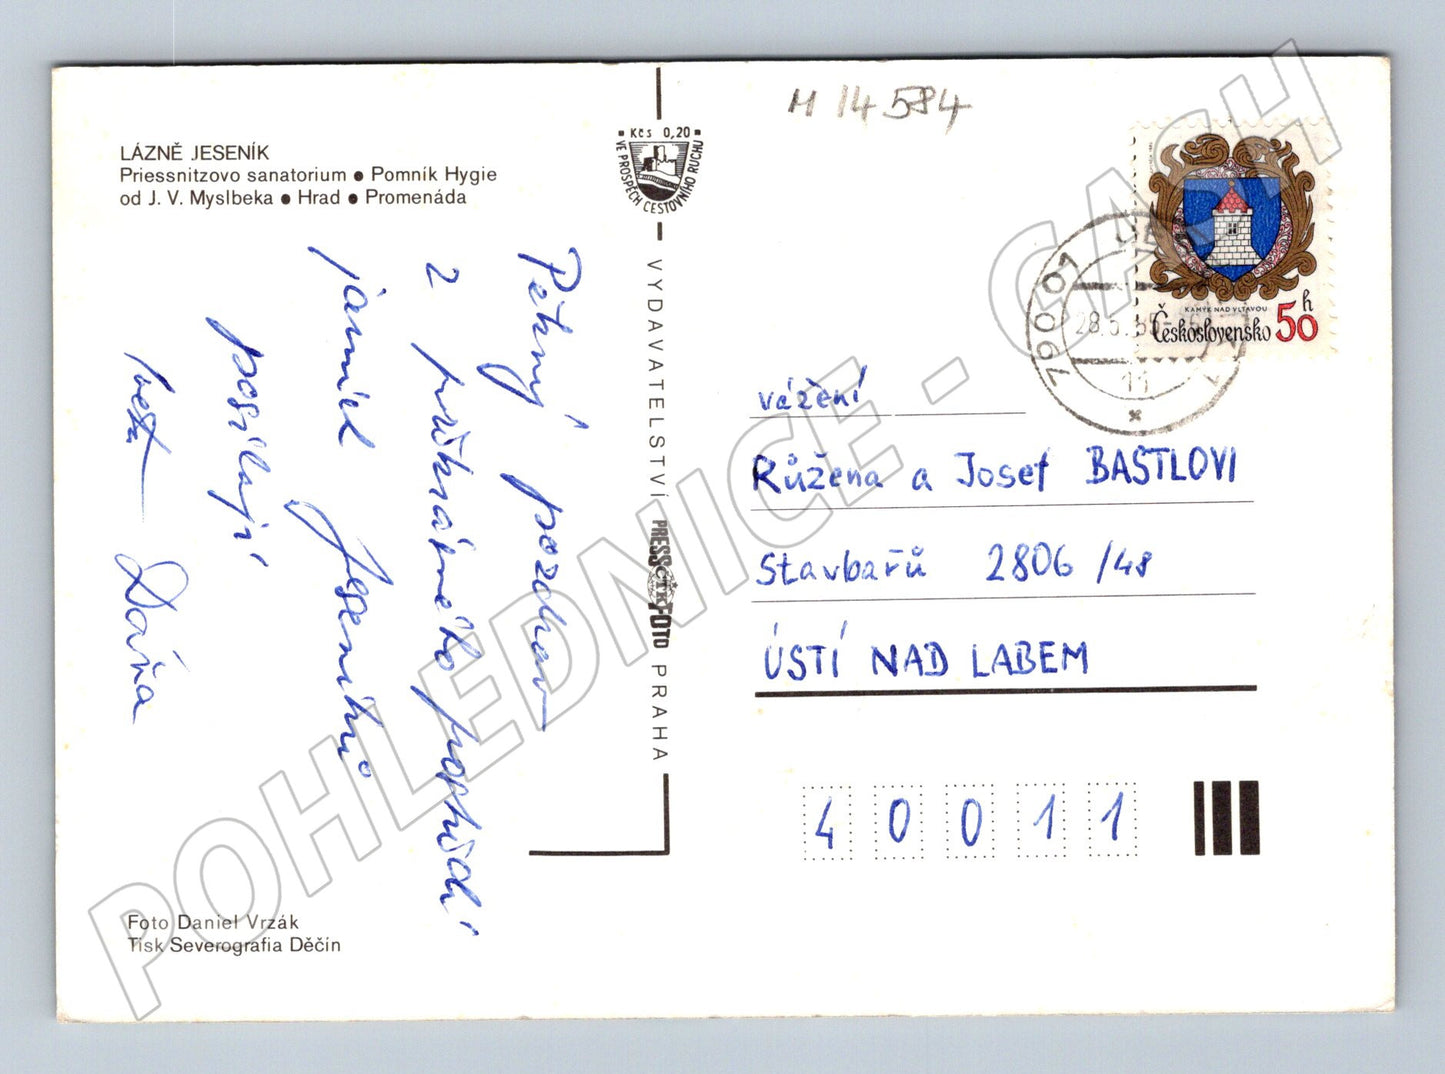 LÁZNĚ JESENÍK
Priessnitzovo sanatorium ● Pomník Hygie
od J. V. Myslbeka ● Hrad ● Promenáda
Pěkný pozdrav
z průzračného popřední
jarních Jeseníků
posílají
Iveta Daňa
Foto Daniel Vrzák
Tisk Severografia Děčín
Kčs 0,20
VE PROSPĚCH CESTOVNÍHO RUCHU
VYDAVATELSTVÍ PRESSFOTO PRAHA
ČTK
M 14584
KAMÝK NAD VLTAVOU
Československo 50 h
790 01
28.5.
11
vážení
Růžena a Josef BASTLOVI
Stavbařů 2806 /48
ÚSTÍ NAD LABEM
40011
POHLEDNICE - CASH